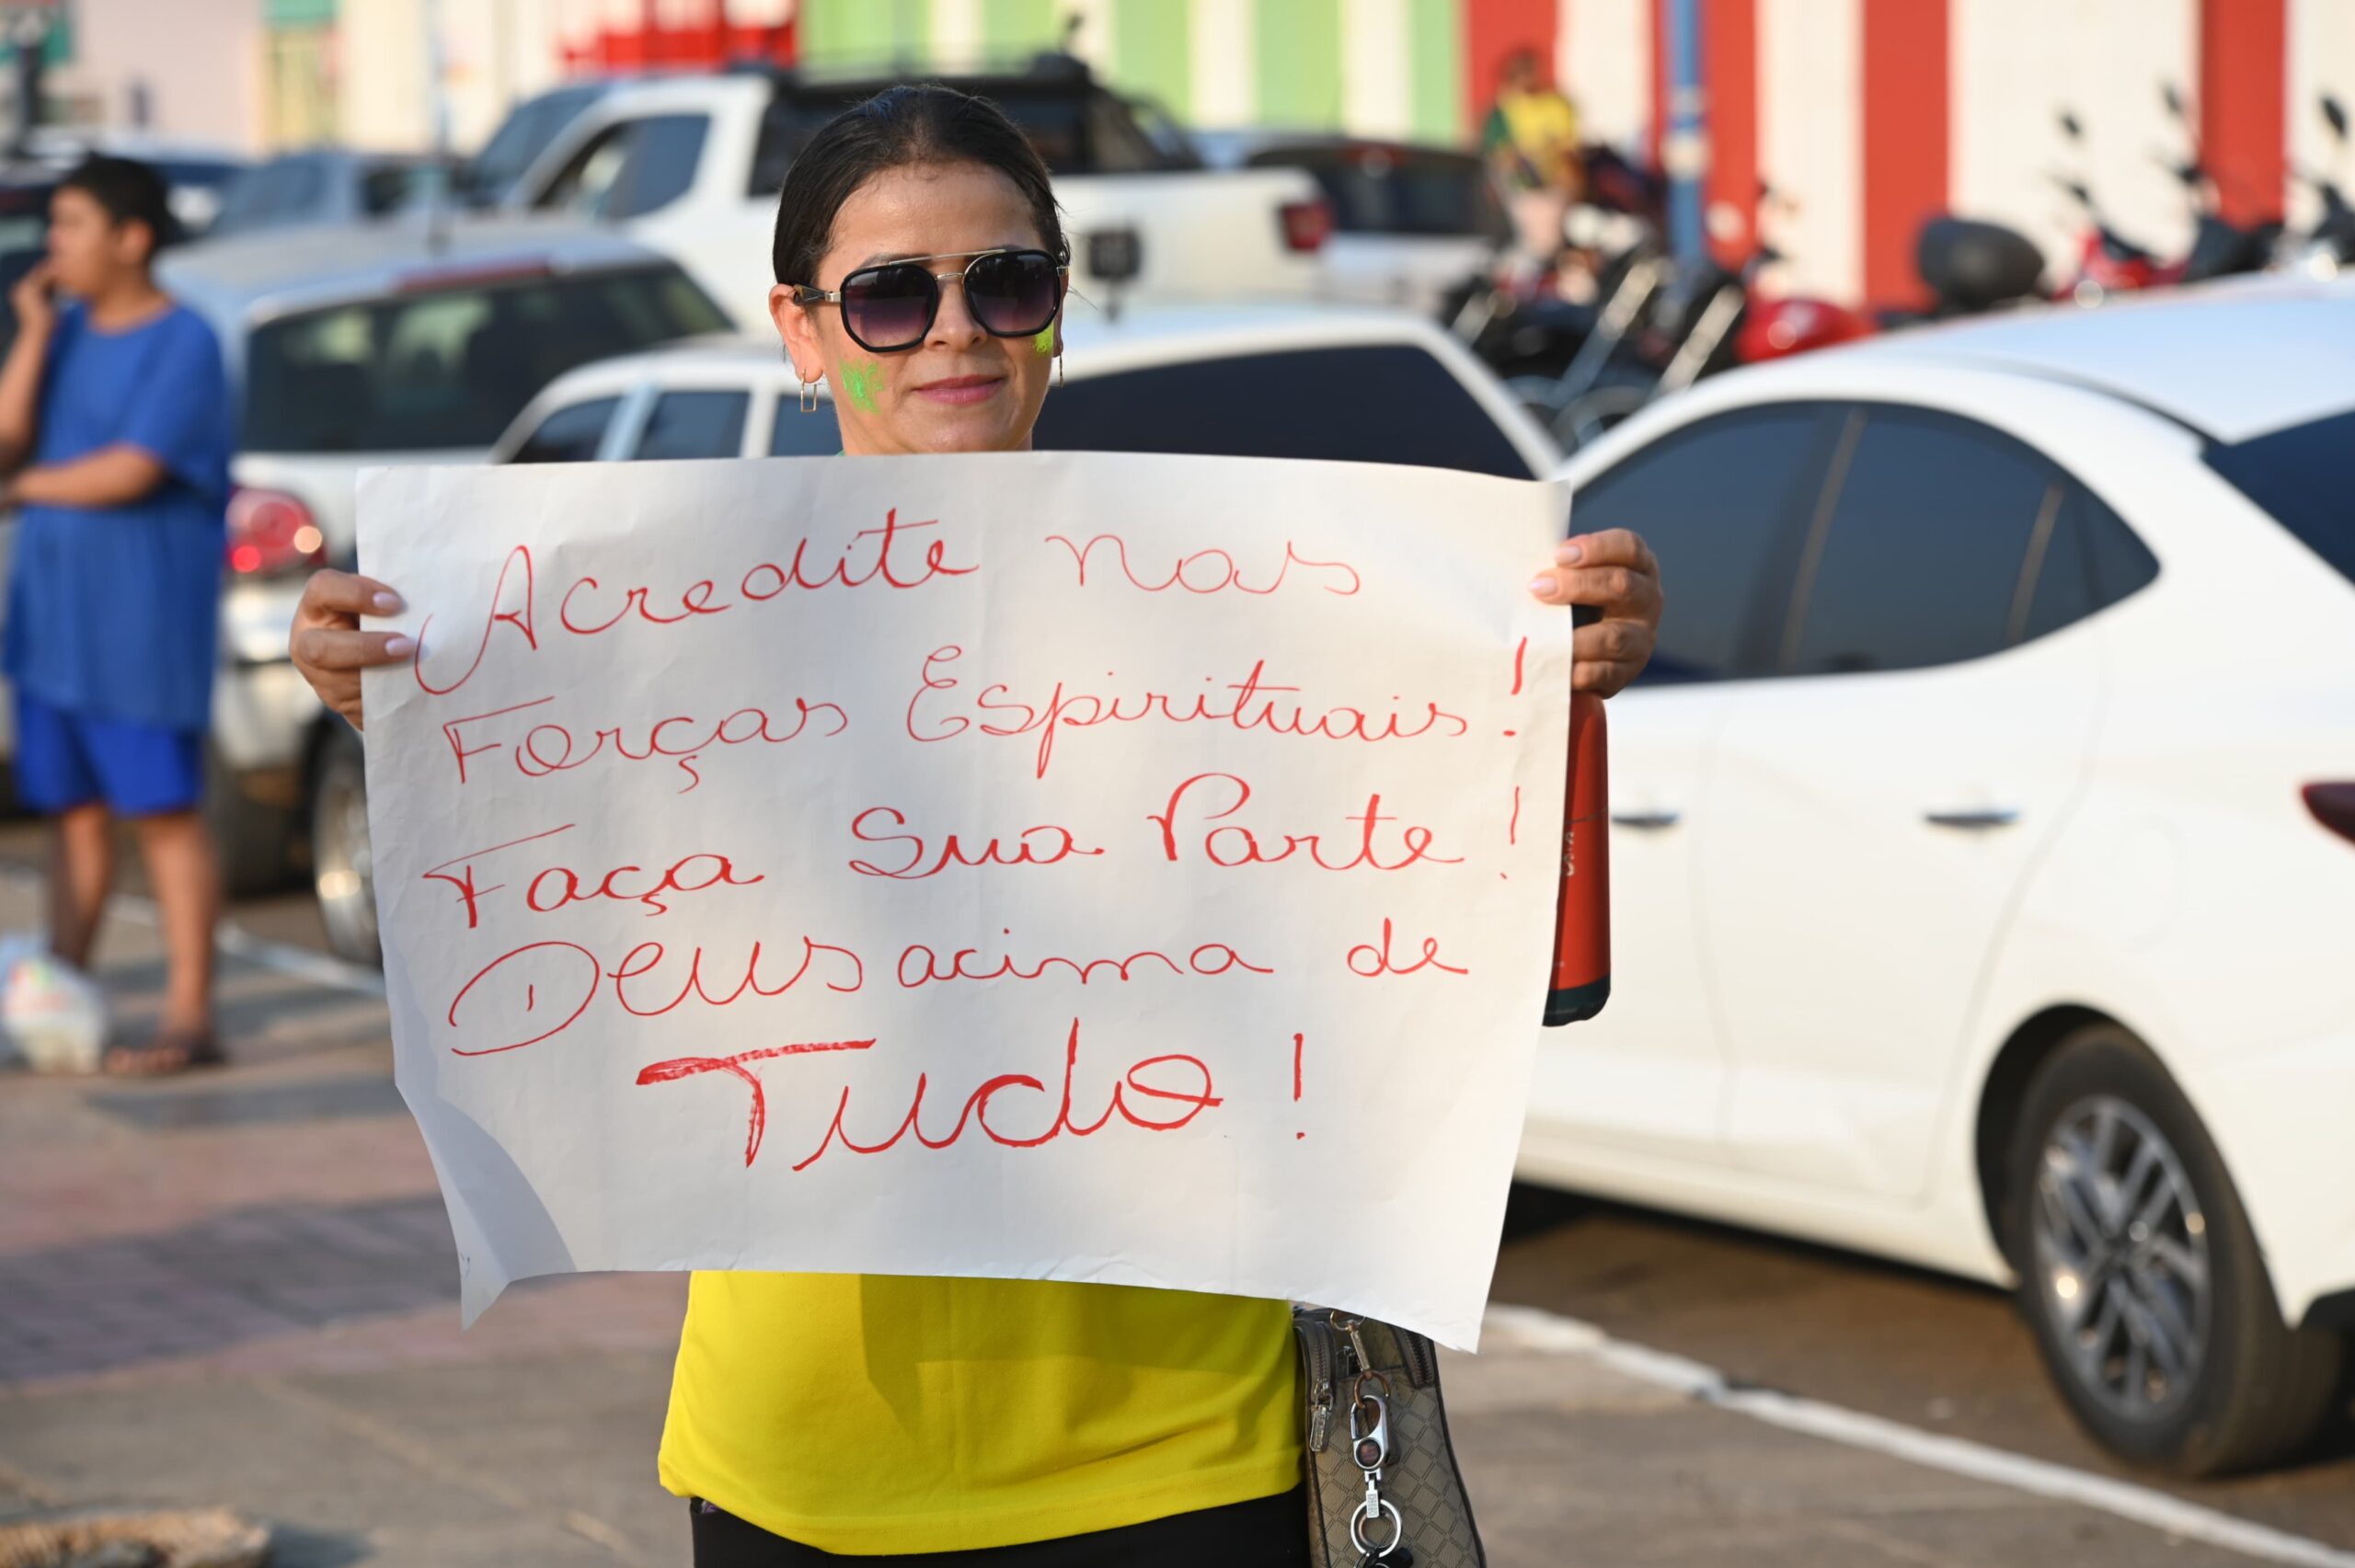 Acredite nas
Forças Espirituais!
Faça Sua Parte!
Deus acima de
Tudo!